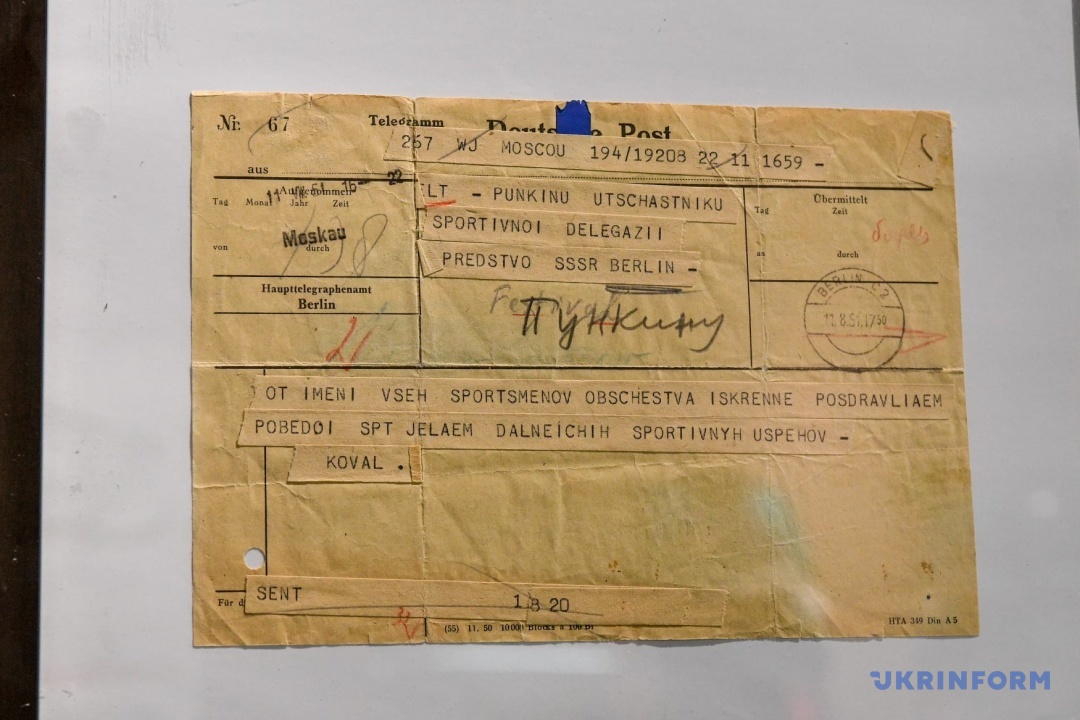 Nr. 67
Telegramm
Deutsche Post
267 WJ MOSCOU 194/19208 22 11 1659 -
aus
Aufgenommen
Tag Monat Jahr Zeit
22
von
Moskau
durch
Haupttelegraphenamt
Berlin
LT - PUNKINU UTSCHASTNIKU
SPORTIVNOI DELEGAZII
PREDSTVO SSSR BERLIN -
Пункину
Übermittelt
Tag Zeit
an durch
BERLIN C2
11.8.51.17 50
OT IMENI VSEH SPORTSMENOV OBSCHESTVA ISKRENNE POSDRAVLIAEM
POBEDOI SPT JELAEM DALNEICHIH SPORTIVNYH USPEHOV -
KOVAL .
SENT 1820
Für d
(55) 11. 50 1000 Blocks à 100 Bl
HTA 349 Din A5
UKRINFORM